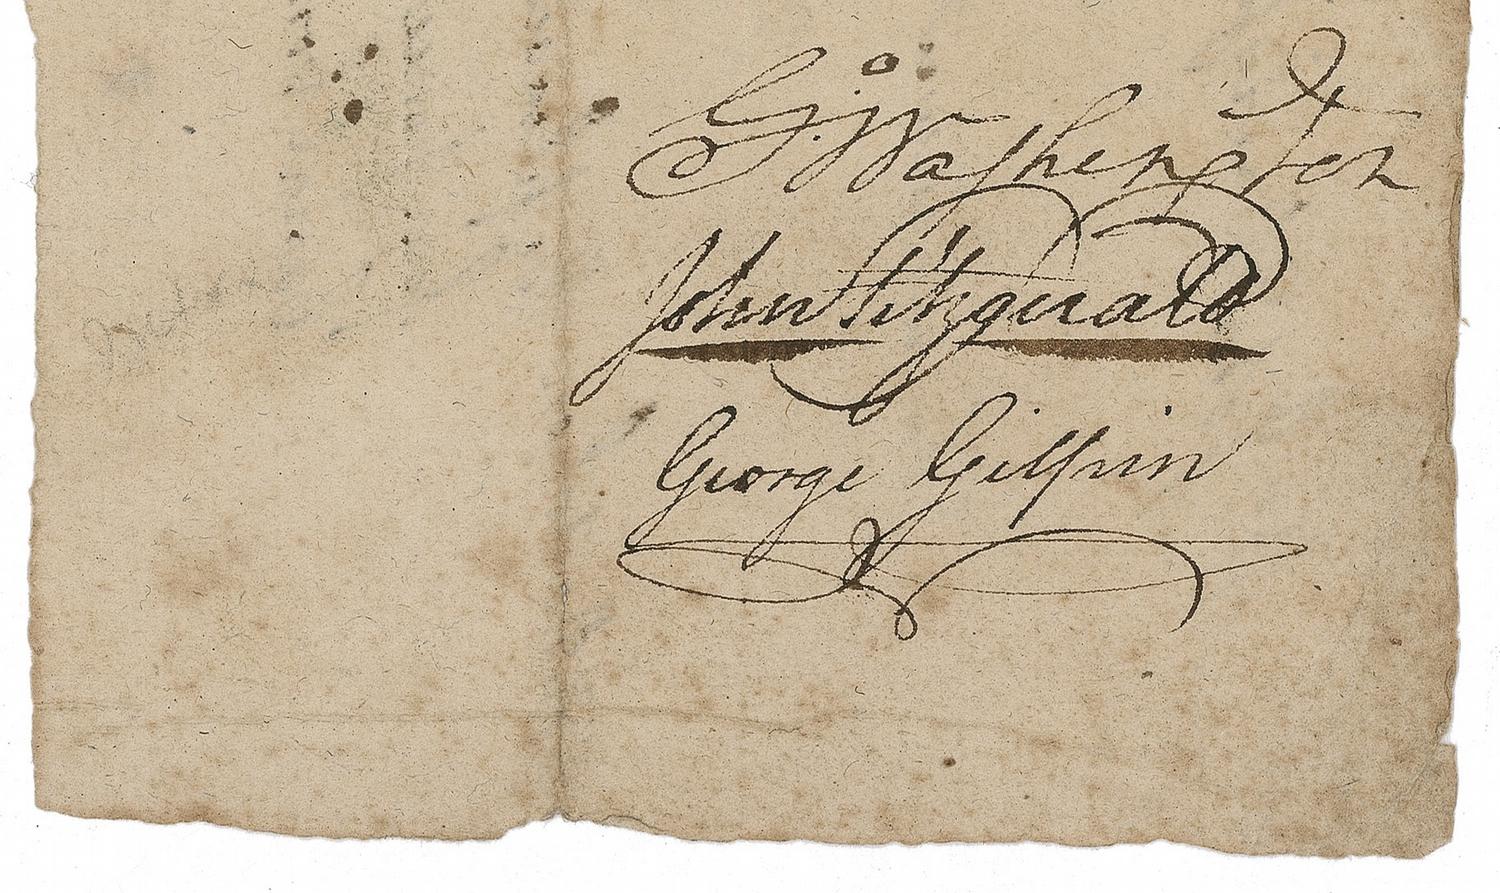 G:Washington
John Fitzgerald
George Gilpin